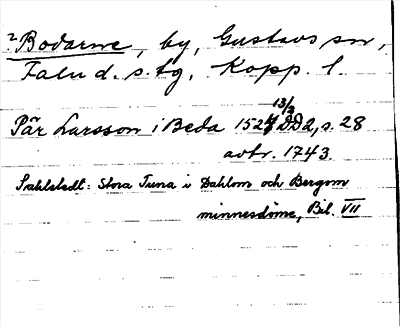 ? Bodarne, by, Gustavs sn,
Falu d. s. tg. Kopp. l.
13/3
Pär Larsson i Beda 1524 DD2, s. 28
avtr. 1743
Sahlstedt: Stora Tuna i Dahlom och Bergom
minnesdöme, Bil. VII